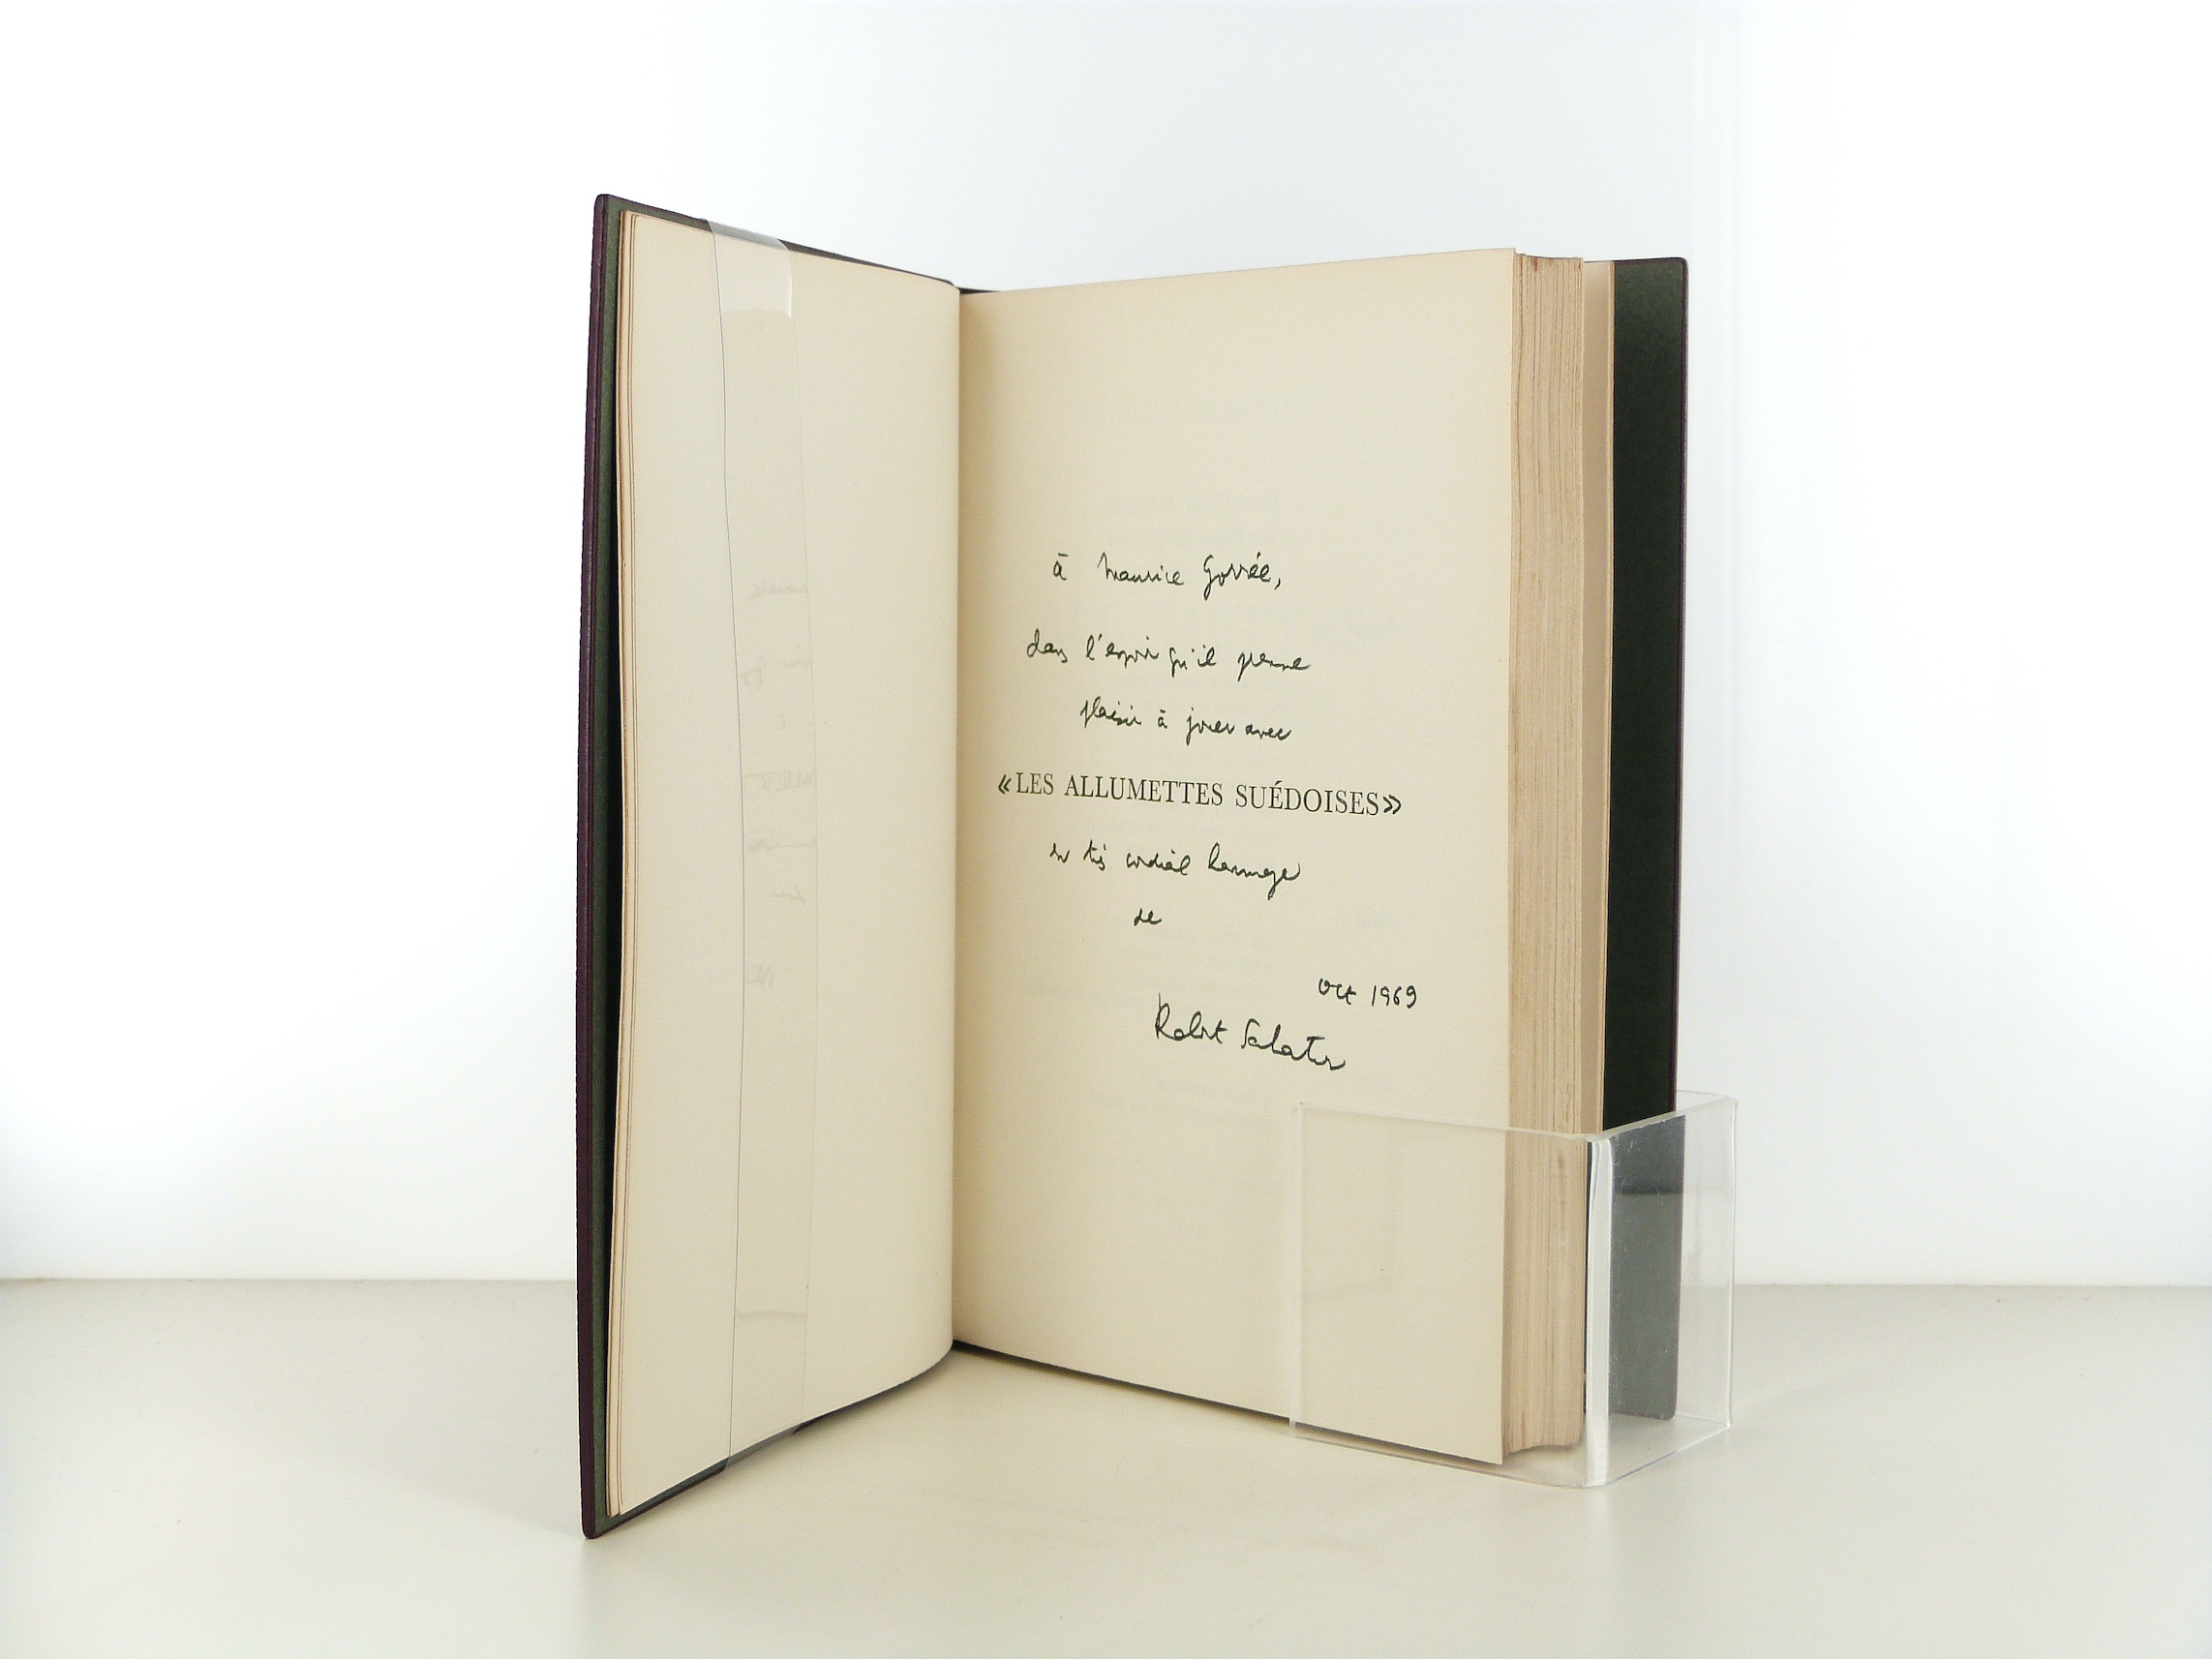 à Maurice Gorrée,
dans l'espoir qu'il prenne
plaisir à jouer avec
«LES ALLUMETTES SUÉDOISES»
en très cordial hommage
de
oct 1969
Robert Sabatier